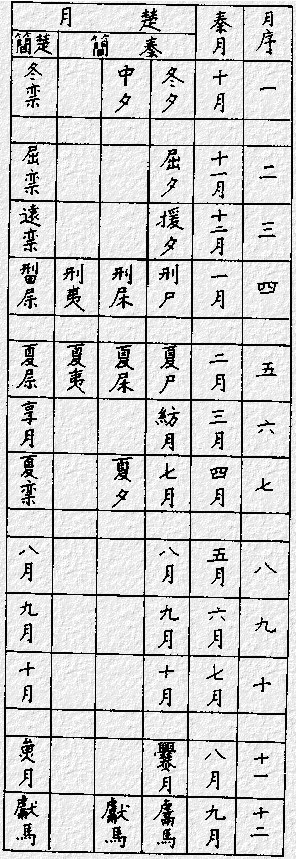 月序 秦月 楚月
秦簡 楚簡
一 十月 冬夕 中夕 冬栾
二 十一月 屈夕 屈栾
三 十二月 援夕 遠栾
四 一月 刑尸 刑杘 刑夷
五 二月 夏尸 夏杘 夏夷 夏
六 三月 紡月 享月
七 四月 七月 夏夕 夏栾
八 五月 八月 八月
九 六月 九月 九月
十 七月 十月 十月
十一 八月 爨月 月
十二 九月 鬳馬 獻馬 獻馬